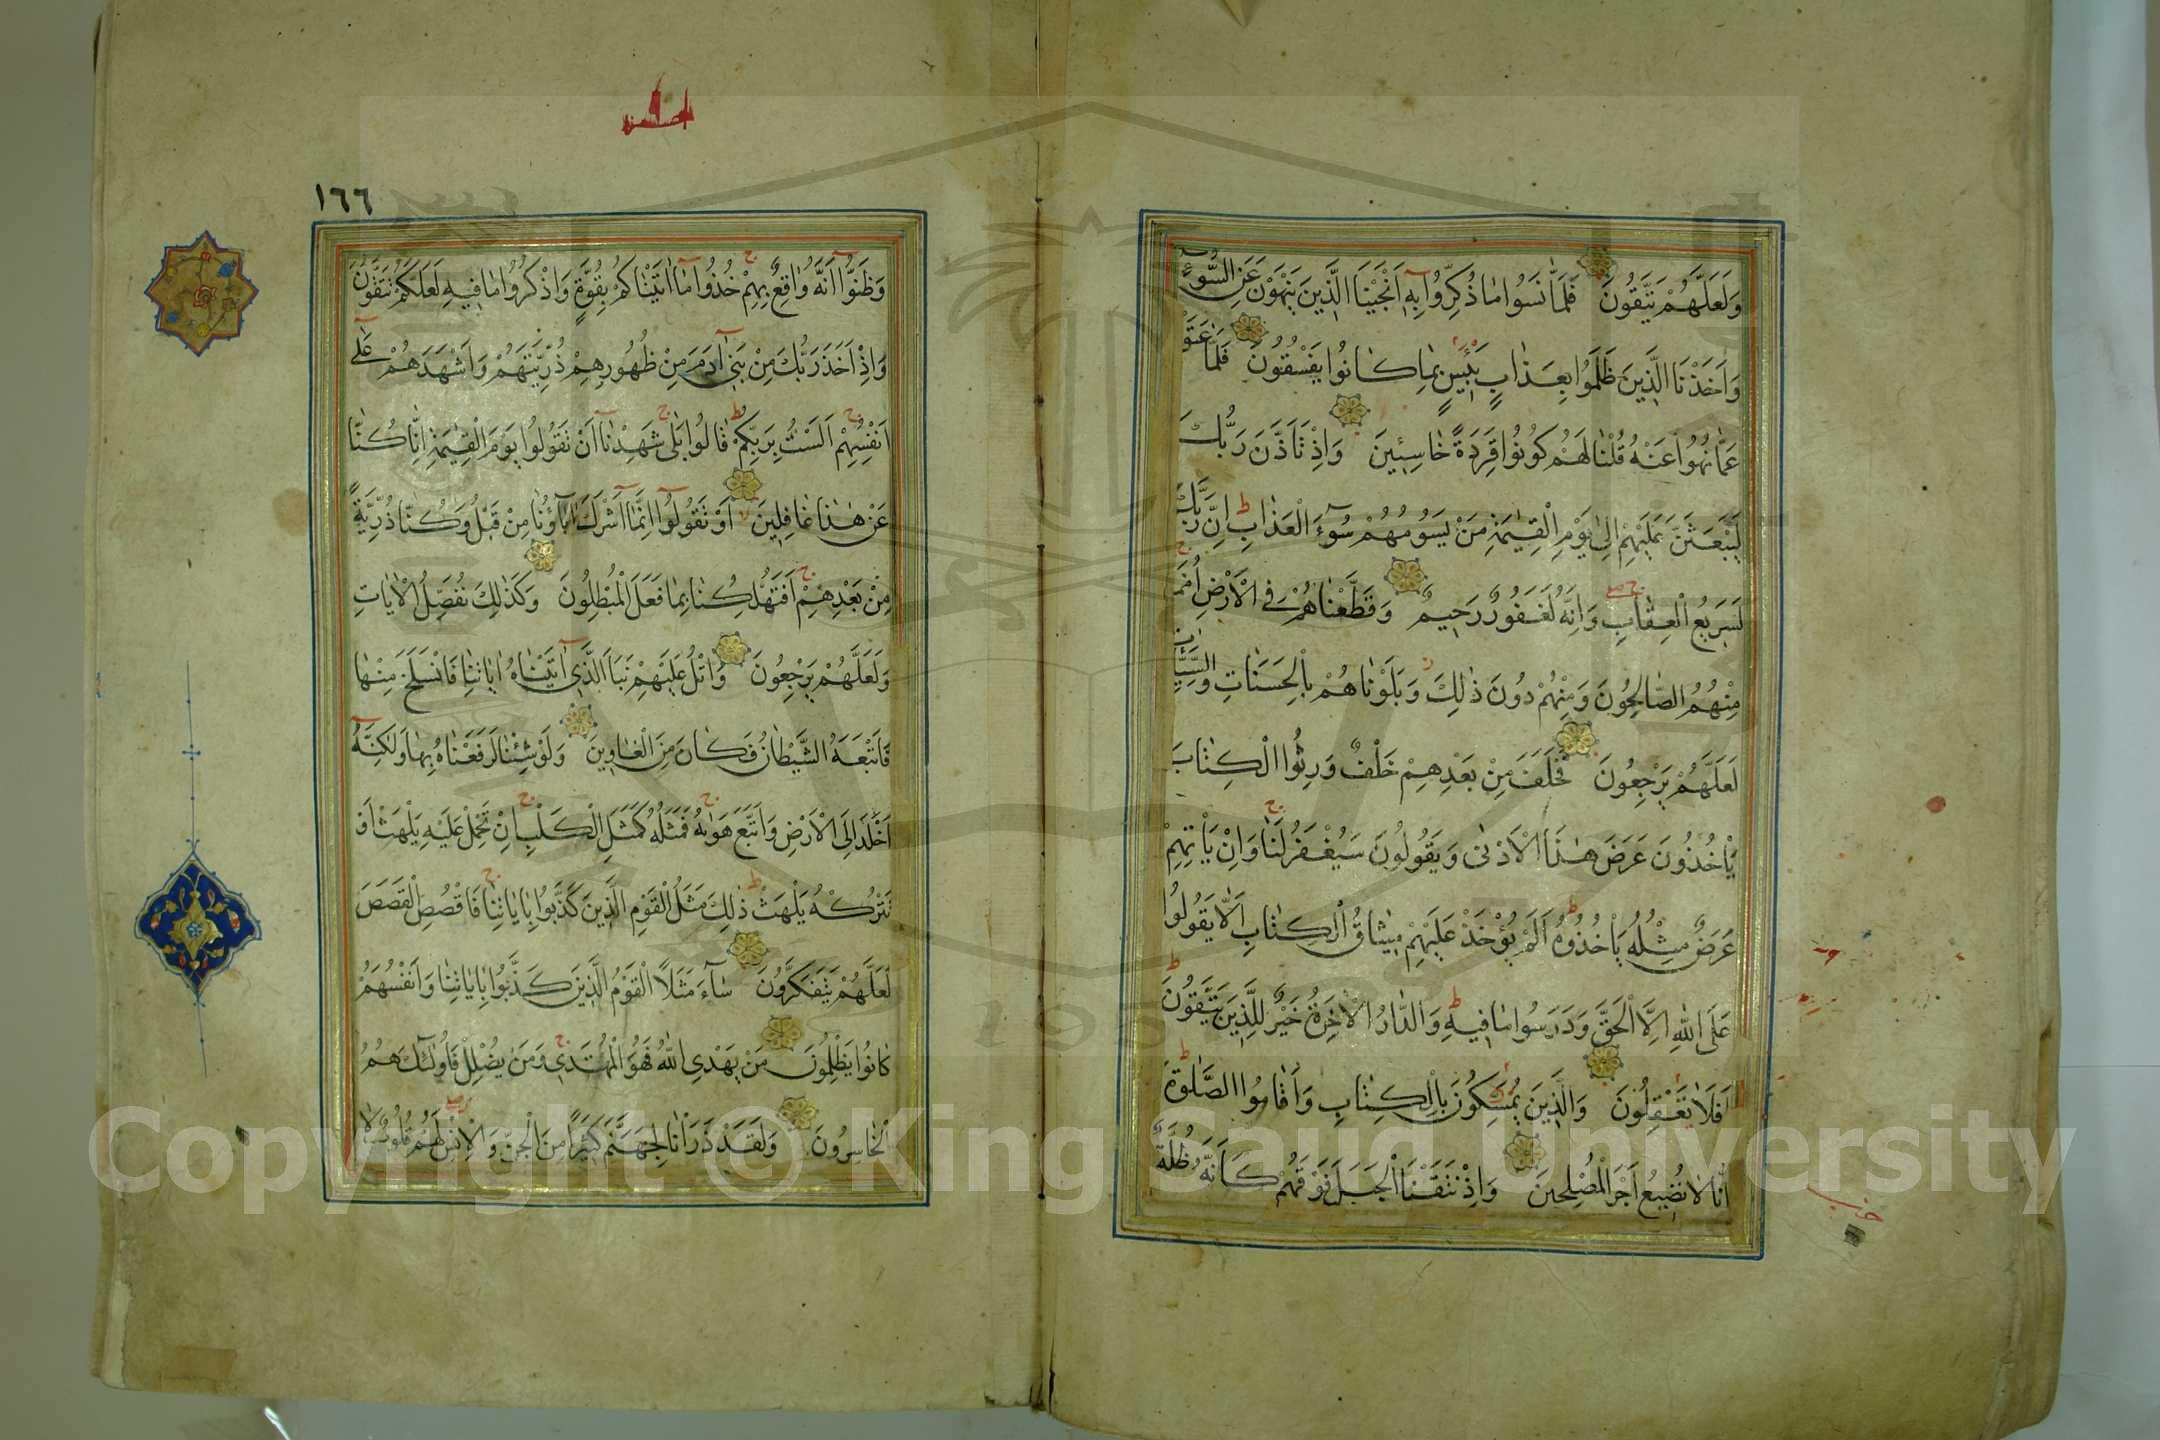 وَلَعَلَّهُمْ يَتَّقُونَ فَلَمَّا نَسُوا مَا ذُكِّرُوا بِهِ اَنْجَيْنَا الَّذِينَ يَنْهَوْنَ عَنِ السُّوءِ
وَاَخَذْنَا الَّذِينَ ظَلَمُوا بِعَذَابٍ بَئِيسٍ بِمَا كَانُوا يَفْسُقُونَ فَلَمَّا عَتَوْ
عَمَّا نُهُوا عَنْهُ قُلْنَا لَهُمْ كُونُوا قِرَدَةً خَاسِئِينَ وَاِذْ تَاَذَّنَ رَبُّكَ
لَيَبْعَثَنَّ عَلَيْهِمْ اِلٰى يَوْمِ الْقِيٰمَةِ مَنْ يَسُومُهُمْ سُوءَ الْعَذَابِ اِنَّ رَبَّكَ
لَسَرِيعُ الْعِقَابِ وَاِنَّهُ لَغَفُورٌ رَحِيمٌ وَقَطَّعْنَاهُمْ فِي الْاَرْضِ اُمَمًا
مِنْهُمُ الصَّالِحُونَ وَمِنْهُمْ دُونَ ذٰلِكَ وَبَلَوْنَاهُمْ بِالْحَسَنَاتِ وَالسَّيِّئَاتِ
لَعَلَّهُمْ يَرْجِعُونَ فَخَلَفَ مِنْ بَعْدِهِمْ خَلْفٌ وَرِثُوا الْكِتَابَ
يَاْخُذُونَ عَرَضَ هٰذَا الْاَدْنٰى وَيَقُولُونَ سَيُغْفَرُ لَنَا وَاِنْ يَاْتِهِمْ
عَرَضٌ مِثْلُهُ يَاْخُذُوهُ اَلَمْ يُؤْخَذْ عَلَيْهِمْ مِيثَاقُ الْكِتَابِ اَلَّا يَقُولُوا
عَلَى اللّٰهِ اِلَّا الْحَقَّ وَدَرَسُوا مَا فِيهِ وَالدَّارُ الْاٰخِرَةُ خَيْرٌ لِلَّذِينَ يَتَّقُونَ
اَفَلَا تَعْقِلُونَ وَالَّذِينَ يُمَسِّكُونَ بِالْكِتَابِ وَاَقَامُوا الصَّلٰوةَ
اِنَّا لَا نُضِيعُ اَجْرَ الْمُصْلِحِينَ وَاِذْ نَتَقْنَا الْجَبَلَ فَوْقَهُمْ كَاَنَّهُ ظُلَّةٌ
١٦٦
وَظَنُّوا اَنَّهُ وَاقِعٌ بِهِمْ خُذُوا مَا اٰتَيْنَاكُمْ بِقُوَّةٍ وَاذْكُرُوا مَا فِيهِ لَعَلَّكُمْ تَتَّقُونَ
وَاِذْ اَخَذَ رَبُّكَ مِنْ بَنِي اٰدَمَ مِنْ ظُهُورِهِمْ ذُرِّيَّتَهُمْ وَاَشْهَدَهُمْ عَلٰى
اَنْفُسِهِمْ اَلَسْتُ بِرَبِّكُمْ قَالُوا بَلٰى شَهِدْنَا اَنْ تَقُولُوا يَوْمَ الْقِيٰمَةِ اِنَّا كُنَّا
عَنْ هٰذَا غَافِلِينَ اَوْ تَقُولُوا اِنَّمَا اَشْرَكَ اٰبَاؤُنَا مِنْ قَبْلُ وَكُنَّا ذُرِّيَّةً
مِنْ بَعْدِهِمْ اَفَتُهْلِكُنَا بِمَا فَعَلَ الْمُبْطِلُونَ وَكَذٰلِكَ نُفَصِّلُ الْاٰيَاتِ
وَلَعَلَّهُمْ يَرْجِعُونَ وَاتْلُ عَلَيْهِمْ نَبَاَ الَّذِي اٰتَيْنَاهُ اٰيَاتِنَا فَانْسَلَخَ مِنْهَا
فَاَتْبَعَهُ الشَّيْطَانُ فَكَانَ مِنَ الْغَاوِينَ وَلَوْ شِئْنَا لَرَفَعْنَاهُ بِهَا وَلٰكِنَّهُ
اَخْلَدَ اِلَى الْاَرْضِ وَاتَّبَعَ هَوٰيهُ فَمَثَلُهُ كَمَثَلِ الْكَلْبِ اِنْ تَحْمِلْ عَلَيْهِ يَلْهَثْ اَوْ
تَتْرُكْهُ يَلْهَثْ ذٰلِكَ مَثَلُ الْقَوْمِ الَّذِينَ كَذَّبُوا بِاٰيَاتِنَا فَاقْصُصِ الْقَصَصَ
لَعَلَّهُمْ يَتَفَكَّرُونَ سَاءَ مَثَلًا الْقَوْمُ الَّذِينَ كَذَّبُوا بِاٰيَاتِنَا وَاَنْفُسَهُمْ
كَانُوا يَظْلِمُونَ مَنْ يَهْدِي اللّٰهُ فَهُوَ الْمُهْتَدِي وَمَنْ يُضْلِلْ فَاُولٰئِكَ هُمُ
الْخَاسِرُونَ وَلَقَدْ ذَرَاْنَا لِجَهَنَّمَ كَثِيرًا مِنَ الْجِنِّ وَالْاِنْسِ لَهُمْ قُلُوبٌ لَا
Copyright © King Saud University